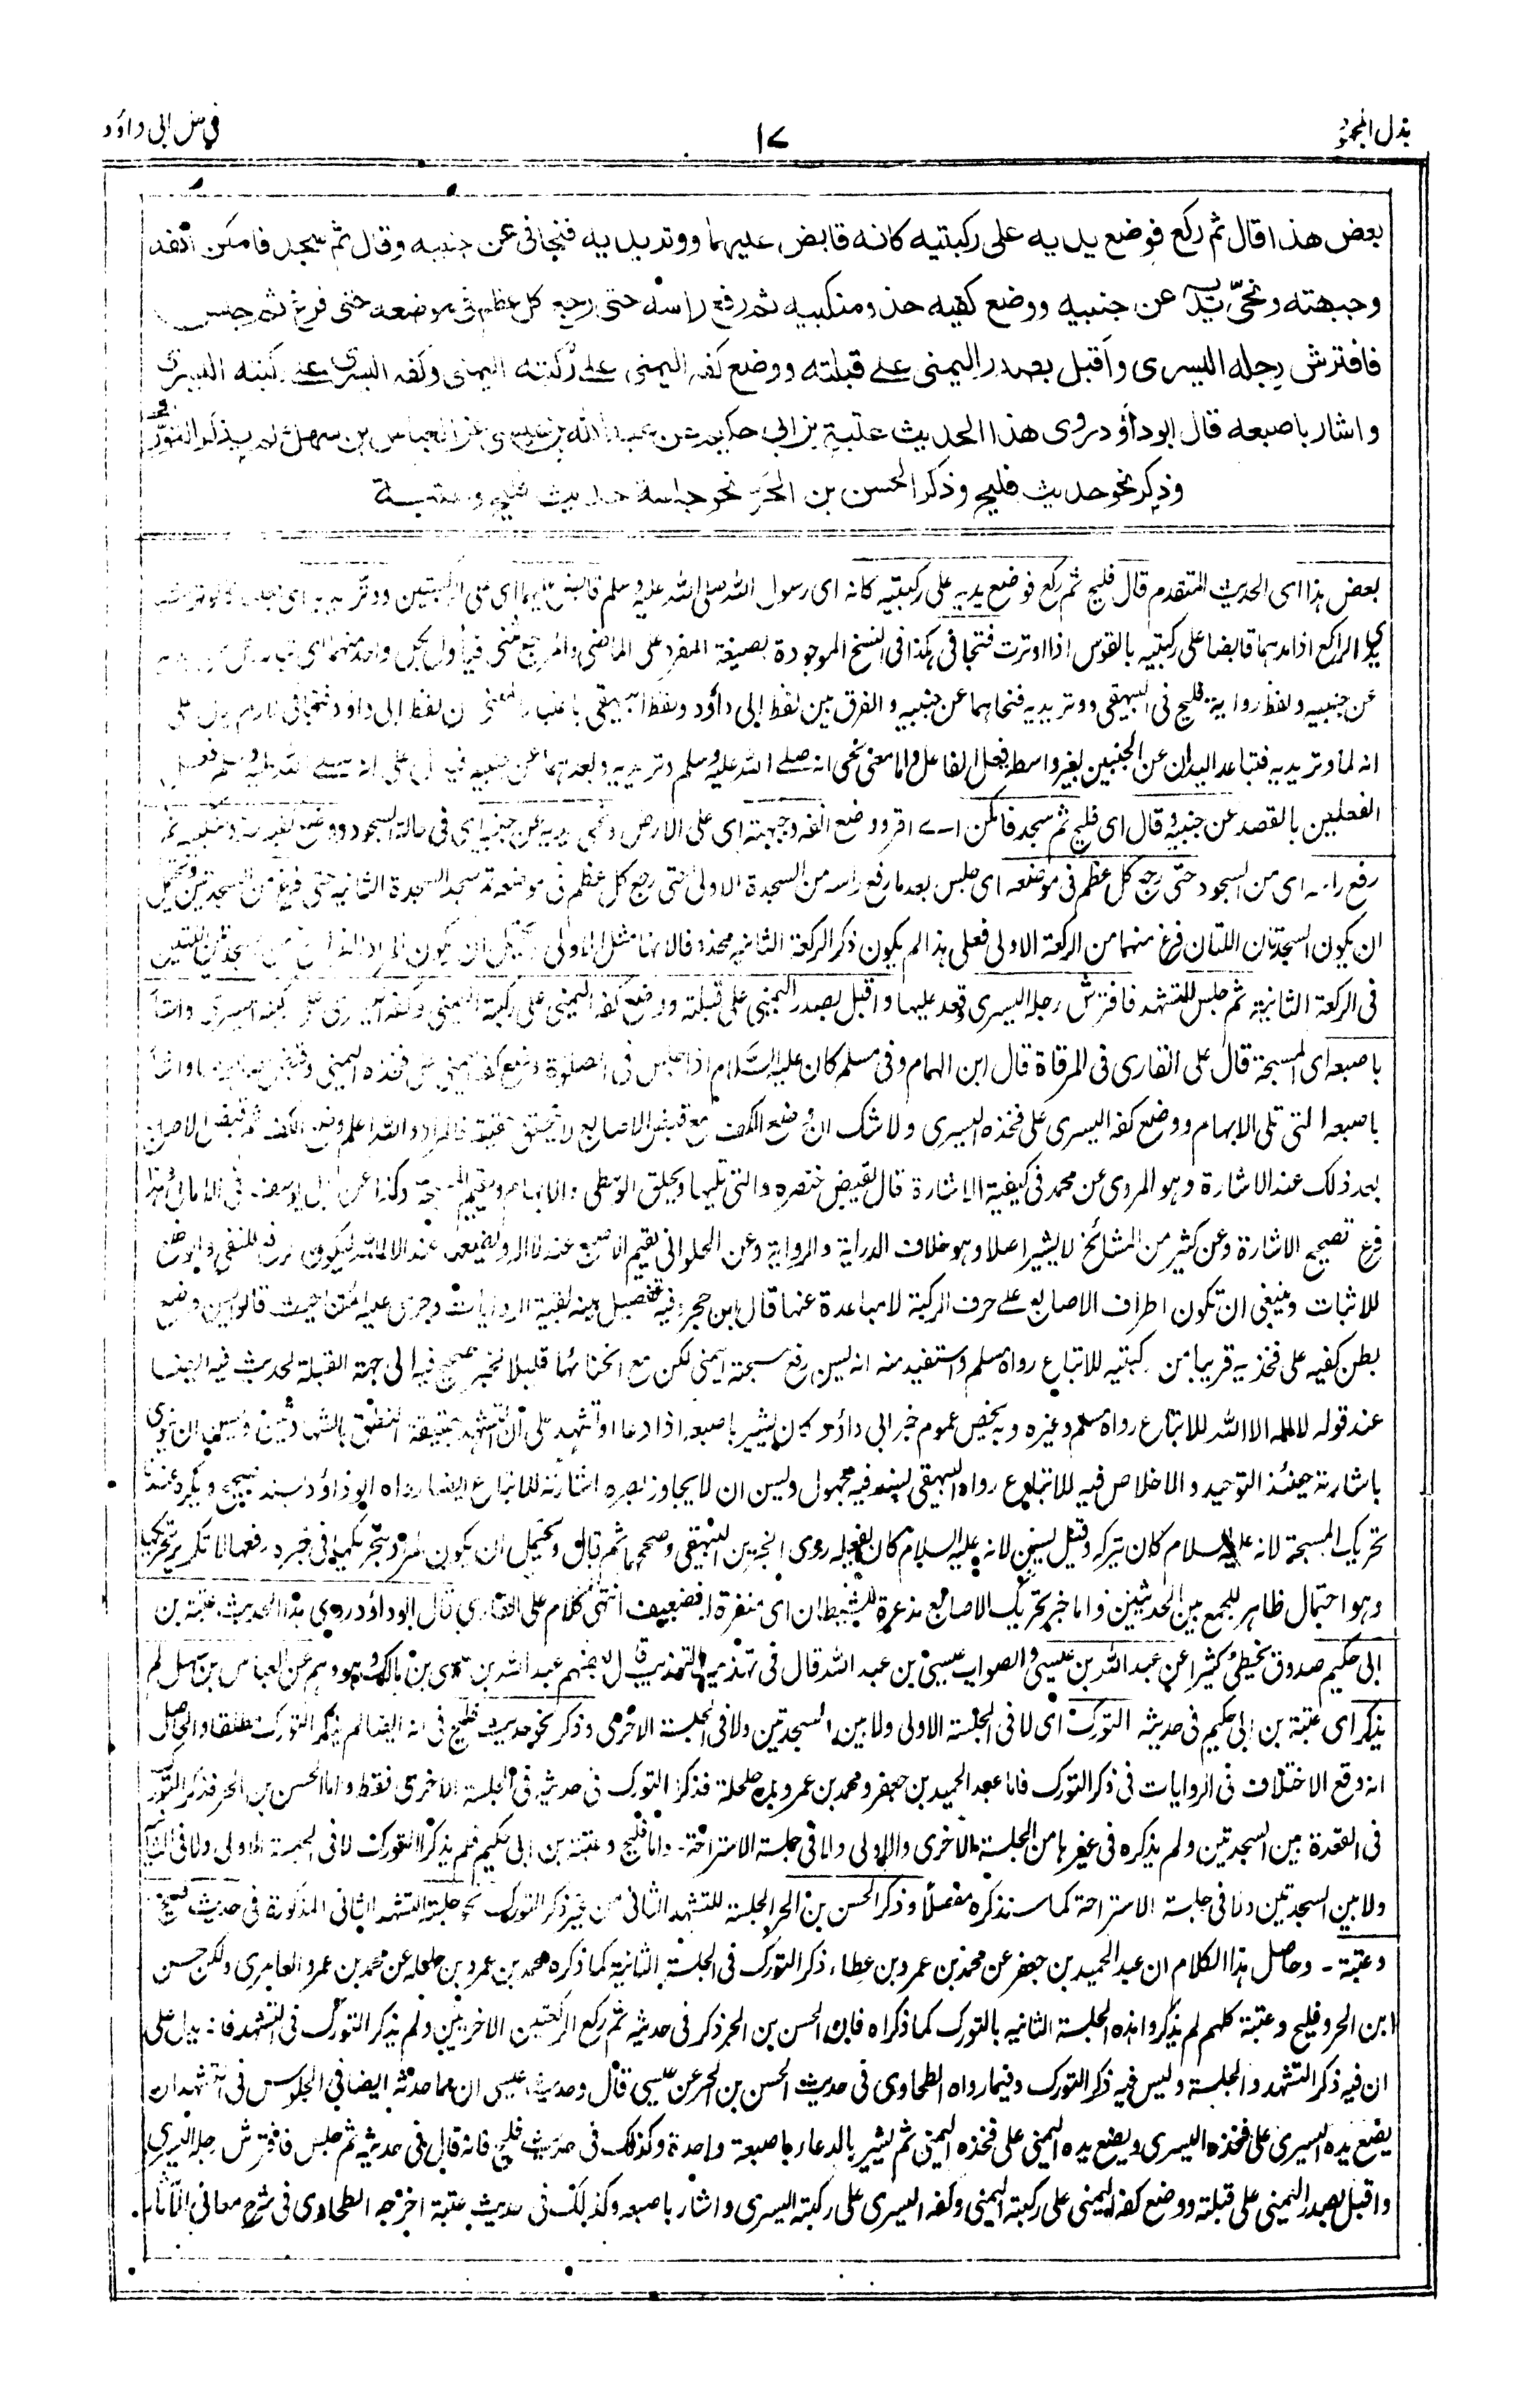 بذل المجهود
١٧
في حل ابى داؤد
بعض هذا قال ثم ركع فوضع يديه على ركبتيه كانه قابض عليهما ووتر يديه فتجافى عن جنبيه وقال ثم سجد فامكن انفه
وجبهته ونحى يديه عن جنبيه ووضع كفيه حذو منكبيه ثم رفع راسه حتى رجع كل عظم فى موضعه حتى فرغ ثم جلس
فافترش رجله اليسرى واقبل بصدر اليمنى على قبلته ووضع كفه اليمنى على ركبته اليمنى وكفه اليسرى على ركبته اليسرى
واشار باصبعه قال ابوداؤد روى هذا الحديث عتبة بن ابى حكيم عن عبد الله بن عيسى عن العباس بن سهل لم يذكر التورك
وذكر نحو حديث فليح وذكر الحسن بن الحر نحو جلسة حديث فليح وعتبة
بعض هذا اى الحديث المتقدم قال فليح ثم ركع فوضع يديه على ركبتيه كانه اى رسول الله صلى الله عليه وسلم قابض عليهما اى على الركبتين ووتر يديه اى
الراكع اذا مدهما قابضا على ركبتيه بالقوس اذا اوترت فتجافى هكذا فى النسخ الموجودة بصيغة المفرد على الماضى
عن جنبيه ولفظ رواية فليح فى البيهقى ووتر يديه فنحاهما عن جنبيه والفرق بين لفظ ابى داؤد ولفظ البيهقى باعتبار المعنى ان لفظ ابى داؤد فتجافى لازم يدل على
انه لما وتر يديه فتباعد اليدان عن الجنبين بغير واسطة فعل الفاعل واما معنى نحى انه صلى الله عليه وسلم وتر يديه وبعدهما عن جنبيه
الفعلين بالقصد عن جنبيه وقال اى فليح ثم سجد فامكن اى اقر ووضع انفه وجبهته اى على الارض ونحى يديه عن جنبيه اى فى حالة السجود ووضع كفيه حذو منكبيه ثم
رفع راسه اى من السجود حتى رجع كل عظم فى موضعه اى جلس بعد ما رفع راسه من السجدة الاولى حتى رجع كل عظم فى موضعه ثم سجد السجدة الثانية حتى فرغ من السجدتين ويحتمل
ان يكون السجدتان اللتان فرغ منهما من الركعة الاولى فعلى هذا لم يكون ذكر الركعة الثانية محذوفا لانها مثل الاولى ويحتمل ان يكون المراد
فى الركعة الثانية ثم جلس للتشهد فافترش رجله اليسرى وقعد عليها واقبل بصدر اليمنى على قبلته ووضع كفه اليمنى على ركبته اليمنى وكفه اليسرى على ركبته اليسرى واشار
باصبعه اى المسبحة قال على القارى فى المرقاة قال ابن الهمام وفى مسلم كان عليه السلام اذا جلس فى الصلوة وضع كفه اليمنى على فخذه اليمنى وقبض اصابعه كلها واشار
باصبعه التى تلى الابهام ووضع كفه اليسرى على فخذه اليسرى ولا شك ان وضع الكف مع قبض الاصابع لا يتحقق حقيقة فالمراد والله اعلم وضع الكف ثم قبض الاصابع
بعد ذلك عند الاشارة وهو المروى عن محمد فى كيفية الاشارة قال يقبض خنصره والتى تليها ويحلق الوسطى والابهام ويقيم المسبحة وكذا عن ابى يوسف فى الامالى وهذا
فرع تصحيح الاشارة وعن كثير من المشائخ لا يشير اصلا وهو خلاف الدراية والرواية وعن الحلوانى يقيم الاصبع عند لا اله ويضعها عند الا الله ليكون الرفع للنفى والوضع
للاثبات وينبغى ان تكون اطراف الاصابع على حرف الركبة لا مباعدة عنها قال ابن حجر وفيه تفصيل بينه بقية الروايات وجرى عليه ائمتنا حيث قالوا يسن وضع
بطن كفيه على فخذيه قريبا من ركبتيه للاتباع رواه مسلم واستفيد منه انه يسن رفع مسبحة اليمنى لكن مع انحنائها قليلا لخبر صحيح فيه الى جهة القبلة لحديث فيه ايضا
عند قوله لا اله الا الله للاتباع رواه مسلم وغيره وبه يخص عموم خبر ابى داؤد كان يشير باصبعه اذا دعا او تشهد على ان التشهد حقيقة النطق بالشهادتين ويسن ان ينوى
باشارته حينئذ التوحيد والاخلاص فيه للاتباع رواه البيهقى بسند فيه مجهول ويسن ان لا يجاوز بصره اشارته للاتباع ايضا رواه ابوداؤد بسند صحيح ويكره عندنا
تحريك المسبحة لانه عليه السلام كان يتركه وقيل يسن لانه عليه السلام كان يفعله روى الخبرين البيهقى وصححهما ثم قال ويحتمل ان يكون المراد بتحريكها فى خبره رفعها لا تكرير تحريكها
وهو احتمال ظاهر للجمع بين الحديثين واما خبر تحريك الاصابع مذعرة للشيطان اى منفرة فضعيف انتهى كلام على القارى قال ابوداؤد روى هذا الحديث عتبة بن
ابى حكيم صدوق يخطئ كثيرا عن عبد الله بن عيسى والصواب عيسى بن عبد الله قال فى تهذيب التهذيب قال بعضهم عبد الله بن عيسى بن مالك وهو وهم عن العباس بن سهل لم
يذكر اى عتبة بن ابى حكيم فى حديثه التورك اى لا فى الجلسة الاولى ولا بين السجدتين ولا فى الجلسة الاخرى وذكر نحو حديث فليح فى انه ايضا لم يذكر التورك مطلقا والحاصل
انه وقع الاختلاف فى الروايات فى ذكر التورك فاما عبد الحميد بن جعفر ومحمد بن عمرو بن حلحلة فذكرا التورك فى حديثه فى الجلسة الاخرى فقط واما الحسن بن الحر فذكر التورك
فى القعدة بين السجدتين ولم يذكره فى غيرها من الجلسة الاخرى والاولى ولا فى جلسة الاستراحة۔ واما فليح وعتبة بن ابى حكيم فلم يذكرا التورك لا فى الجلسة الاولى ولا فى الثانية
ولا بين السجدتين ولا فى جلسة الاستراحة كما سنذكره مفصلا وذكر الحسن بن الحر الجلسة للتشهد الثانى من غير ذكر التورك نحو جلسة التشهد الثانى المذكورة فى حديث فليح
وعتبة۔ وحاصل هذا الكلام ان عبد الحميد بن جعفر عن محمد بن عمرو بن عطاء ذكر التورك فى الجلسة الثانية كما ذكره محمد بن عمرو بن حلحلة عن محمد بن عمرو العامرى ولكن حسن
ابن الحر وفليح وعتبة كلهم لم يذكروا هذه الجلسة الثانية بالتورك كما ذكراه فان الحسن بن الحر ذكر فى حديثه ثم ركع الركعتين الاخريين ولم يذكر التورك فى التشهد فانه يدل على
ان فيه ذكر التشهد والجلسة وليس فيه ذكر التورك وفيما رواه الطحاوى فى حديث الحسن بن الحر عن عيسى قال وحديث عيسى ان مما حدثه ايضا فى الجلوس فى التشهد ان
يضع يده اليسرى على فخذه اليسرى ويضع يده اليمنى على فخذه اليمنى ثم يشير بالدعاء باصبعة واحدة وكذلك فى حديث فليح فانه قال فى حديثه ثم جلس فافترش رجله اليسرى
واقبل بصدر اليمنى على قبلته ووضع كفه اليمنى على ركبته اليمنى وكفه اليسرى على ركبته اليسرى واشار باصبعه وكذلك فى حديث عتبة اخرجه الطحاوى فى شرح معانى الآثار